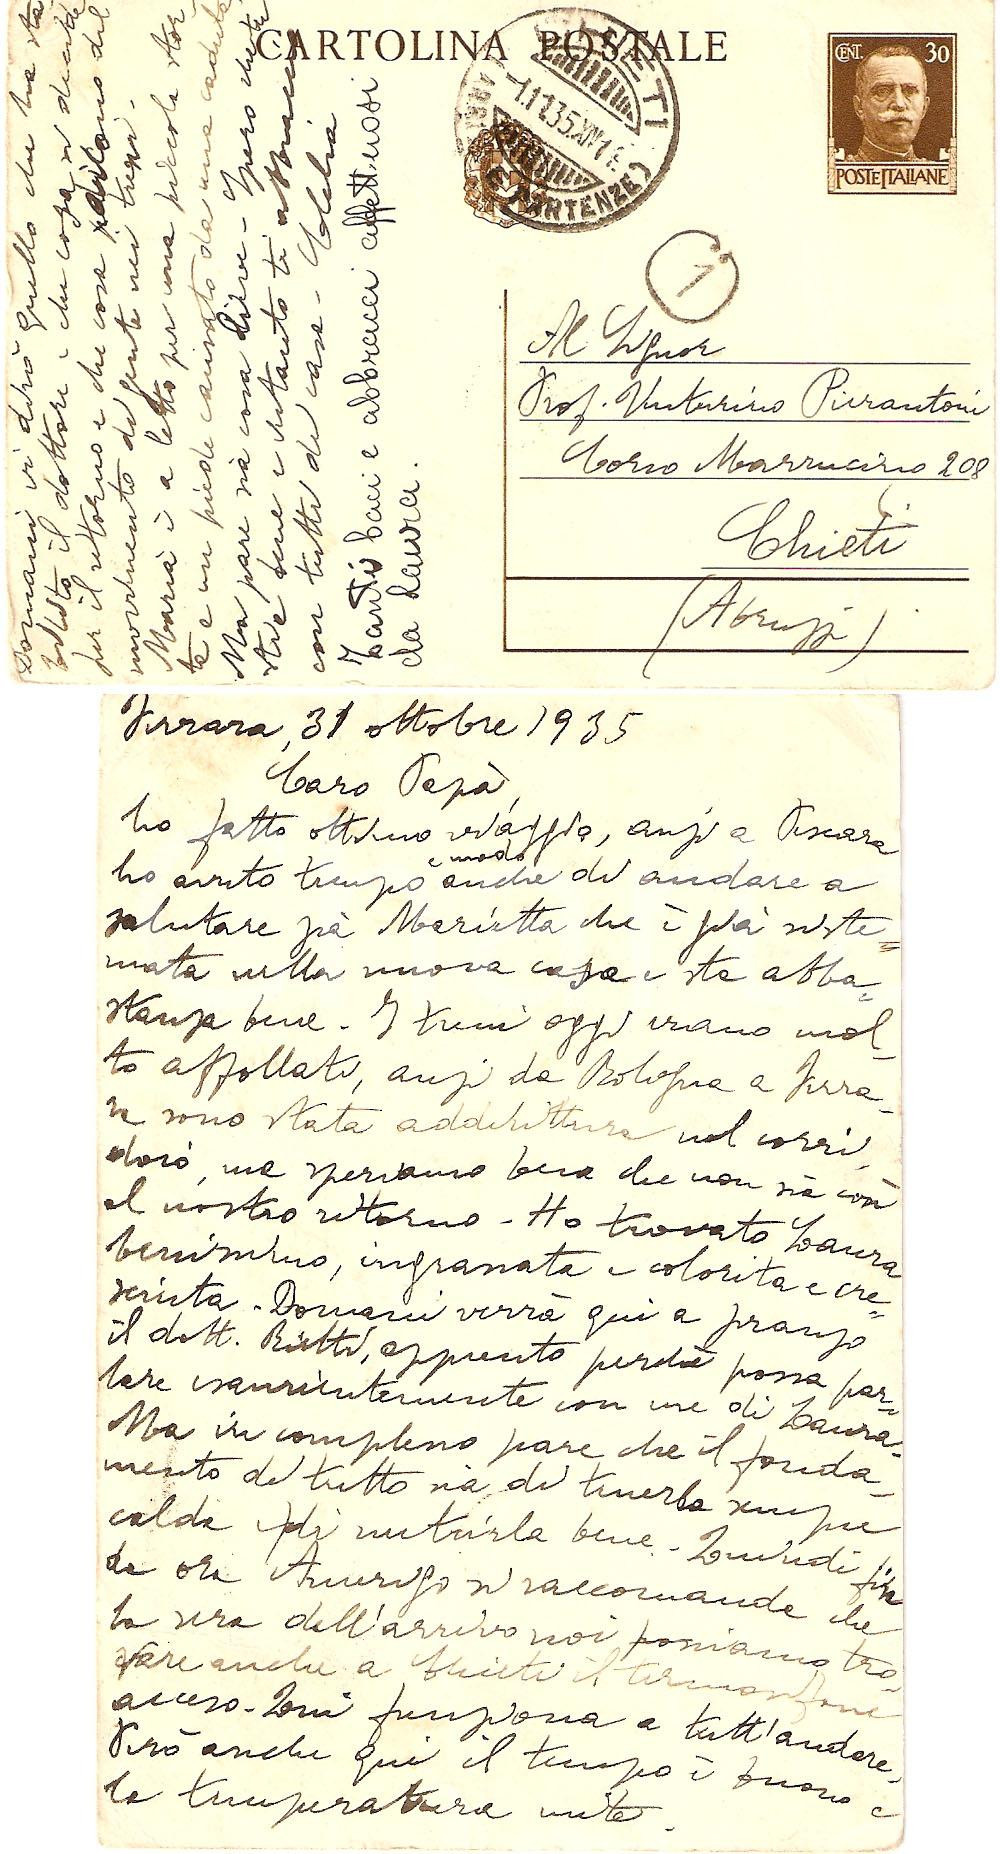 CARTOLINA POSTALE
CENT. 30
POSTE ITALIANE
CHIETI
1.11.35.XIV
PARTENZE)
1
Al Signor
Prof. Vinturino Pierantoni
Corso Marrucino 208
Chieti
(Abruzzi)
Domani vi dirò quello che ha sta-
bilito il dottore e che cosa si decide
per il ritorno e che cosa parlano del
movimento di gente nei treni.
Maria è a letto per una piccola stor
ta a un piede causato da una caduta
Ma pare sia cosa lieve - Spero che tu
stia bene e intanto ti
con tutti di casa -
Tanti baci e abbracci affettuosi
da Laura.
Ferrara, 31 ottobre 1935
Caro Papà,
ho fatto ottimo viaggio, anzi a Pescara
ho avuto tempo e modo anche di andare a
salutare già Marietta che è già siste=
mata nella nuova casa e sta abba=
stanza bene - I treni oggi erano mol-
to affollati, anzi da Bologna a Ferra-
ra sono stata addirittura nel corri
doio, ma speriamo bene che non sia così
al nostro ritorno - Ho trovato Laura
benissimo, ingrassata e colorita e cre=
sciuta - Domani verrà qui a pranzo
il dott. Rietti, appunto perché possa par=
lare esaurientemente con me di Laura-
Ma in complesso pare che il fonda-
mento di tutto sia di tenerla sempre
calda e di nutrirla bene - Quindi fin
da ora Amerigo si raccomanda che
la sera dell'arrivo noi possiamo tro-
vare anche a Chieti il termosifone
acceso - Qui funziona a tutt'andare,
Però anche qui il tempo è buono e
la temperatura mite.